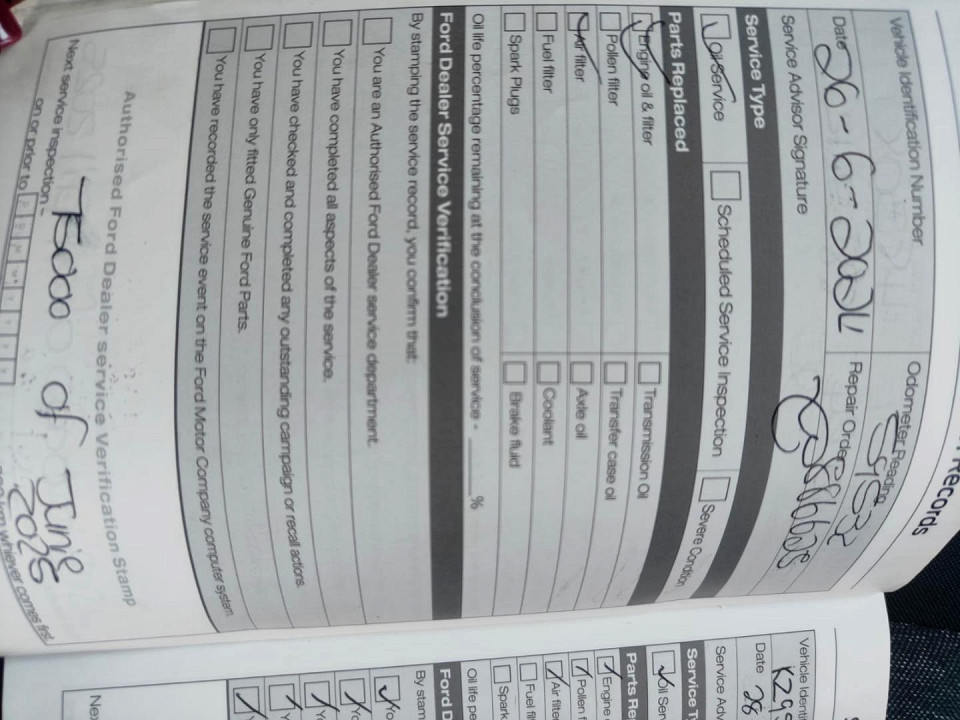 Records
Vehicle Identification Number
Odometer Reading
Date 26-6-202
Repair Order
Service Advisor Signature
Service Type
Oil Service
Scheduled Service Inspection
Severe Condition
Parts Replaced
Engine oil & filter
Transmission Oil
Pollen filter
Transfer case oil
Air filter
Axle oil
Fuel filter
Coolant
Spark Plugs
Brake fluid
Oil life percentage remaining at the conclusion of service - ____%
Ford Dealer Service Verification
By stamping the service record, you confirm that:
You are an Authorised Ford Dealer service department.
You have completed all aspects of the service.
You have checked and completed any outstanding campaign or recall actions.
You have only fitted Genuine Ford Parts.
You have recorded the service event on the Ford Motor Company computer system.
Authorised Ford Dealer service Verification Stamp
Next service inspection -
on or prior to
75000 of June
2026
km whichever comes first.
Vehicle Identi
KZ9
Date 28
Service Adv
Service T
Oil Serv
Parts Re
Engine
Pollen f
Air filte
Fuel fil
Spark
Oil life pe
Ford D
By stam
Yo
Yo
Yo
Y
Y
Nex